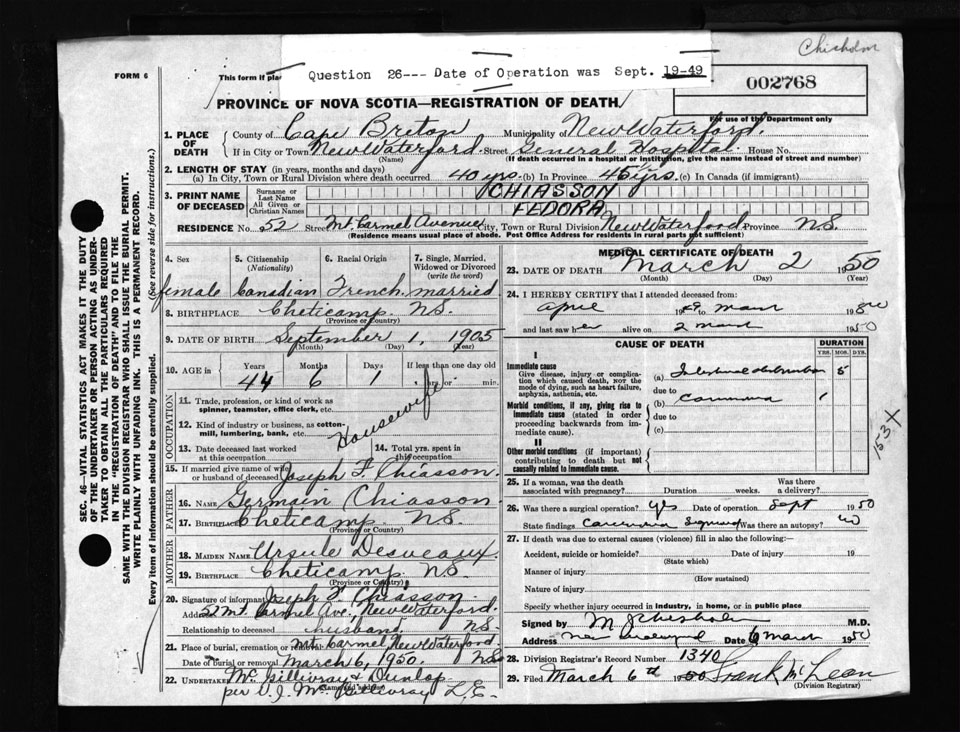 Chisholm
FORM 6
This form if pla
Question 26--- Date of Operation was Sept. 19-49
002768
For use of the Department only
PROVINCE OF NOVA SCOTIA—REGISTRATION OF DEATH
1. PLACE OF DEATH County of Cape Breton Municipality of New Waterford.
If in City or Town New Waterford. Street General Hospital. House No.
(Name) (If death occurred in a hospital or institution, give the name instead of street and number)
2. LENGTH OF STAY (in years, months and days)
(a) In City, Town or Rural Division where death occurred 40 yrs. (b) In Province 45 yrs. (c) In Canada (if immigrant)
3. PRINT NAME OF DECEASED Surname or Last Name CHIASSON
All Given or Christian Names FEDORA
RESIDENCE No. 52 Street Mt. Carmel Avenue City, Town or Rural Division New Waterford Province N.S.
(Residence means usual place of abode. Post Office Address for residents in rural parts not sufficient)
4. Sex 5. Citizenship (Nationality) 6. Racial Origin 7. Single, Married, Widowed or Divorced (write the word)
female Canadian French. married
8. BIRTHPLACE Cheticamp. N.S.
(Province or Country)
9. DATE OF BIRTH September 1, 1905
(Month) (Day) (Year)
10. AGE in Years Months Days If less than one day
44 6 1 hrs. or min.
OCCUPATION
11. Trade, profession or kind of work as spinner, teamster, office clerk, etc.
Housewife
12. Kind of industry or business, as cotton-mill, lumbering, bank, etc.
13. Date deceased last worked at this occupation 14. Total yrs. spent in this occupation
15. If married give name of wife or husband of deceased Joseph F. Chiasson.
FATHER
16. Name Germain Chiasson
17. Birthplace Cheticamp N.S.
(Province or Country)
MOTHER
18. MAIDEN NAME Ursule Desveaux.
19. BIRTHPLACE Cheticamp. N.S.
(Province or Country)
20. Signature of informant Joseph F. Chiasson
Address 52 Mt. Carmel Ave. New Waterford.
Relationship to deceased husband. N.S.
21. Place of burial, cremation or removal Mt. Carmel, New Waterford
Date of burial or removal March 6, 1950. N.S.
22. UNDERTAKER McGillivray & Dunlop
(Name and address)
per V.J. McGillivray L.E.
MEDICAL CERTIFICATE OF DEATH
23. DATE OF DEATH March 2 1950
(Month) (Day) (Year)
24. I HEREBY CERTIFY that I attended deceased from:
April 1949 to March 19
and last saw her alive on 2 March 1950
CAUSE OF DEATH DURATION
YRS. MOS. DYS.
I
Immediate cause
Give disease, injury or complication which caused death, not the mode of dying, such as heart failure, asphyxia, asthenia, etc.
(a) Intestinal obstruction 5
due to
(b) Carcinoma 1
Morbid conditions, if any, giving rise to immediate cause (stated in order proceeding backwards from immediate cause).
due to
(c)
II
Other morbid conditions (if important) contributing to death but not causally related to immediate cause.
153X
25. If a woman, was the death associated with pregnancy? Duration weeks. Was there a delivery?
26. Was there a surgical operation? yes Date of operation Sept 1950
State findings Carcinoma Sigmoid Was there an autopsy? no
27. If death was due to external causes (violence) fill in also the following:—
Accident, suicide or homicide? Date of injury 19
(State which)
Manner of injury
(How sustained)
Nature of injury
Specify whether injury occurred in Industry, in home, or in public place
Signed by M J Chisholm M.D.
Address New Waterford Date 6 March 1950
28. Division Registrar's Record Number 1340
29. Filed March 6th 1950 Frank McLean
(Division Registrar)
SEC. 46—VITAL STATISTICS ACT MAKES IT THE DUTY OF THE UNDERTAKER OR PERSON ACTING AS UNDERTAKER TO OBTAIN ALL THE PARTICULARS REQUIRED IN THE "REGISTRATION OF DEATH" AND TO FILE THE SAME WITH THE DIVISION REGISTRAR WHO SHALL ISSUE THE BURIAL PERMIT.
WRITE PLAINLY WITH UNFADING INK. THIS IS A PERMANENT RECORD.
Every item of Information should be carefully supplied. (See reverse side for instructions.)